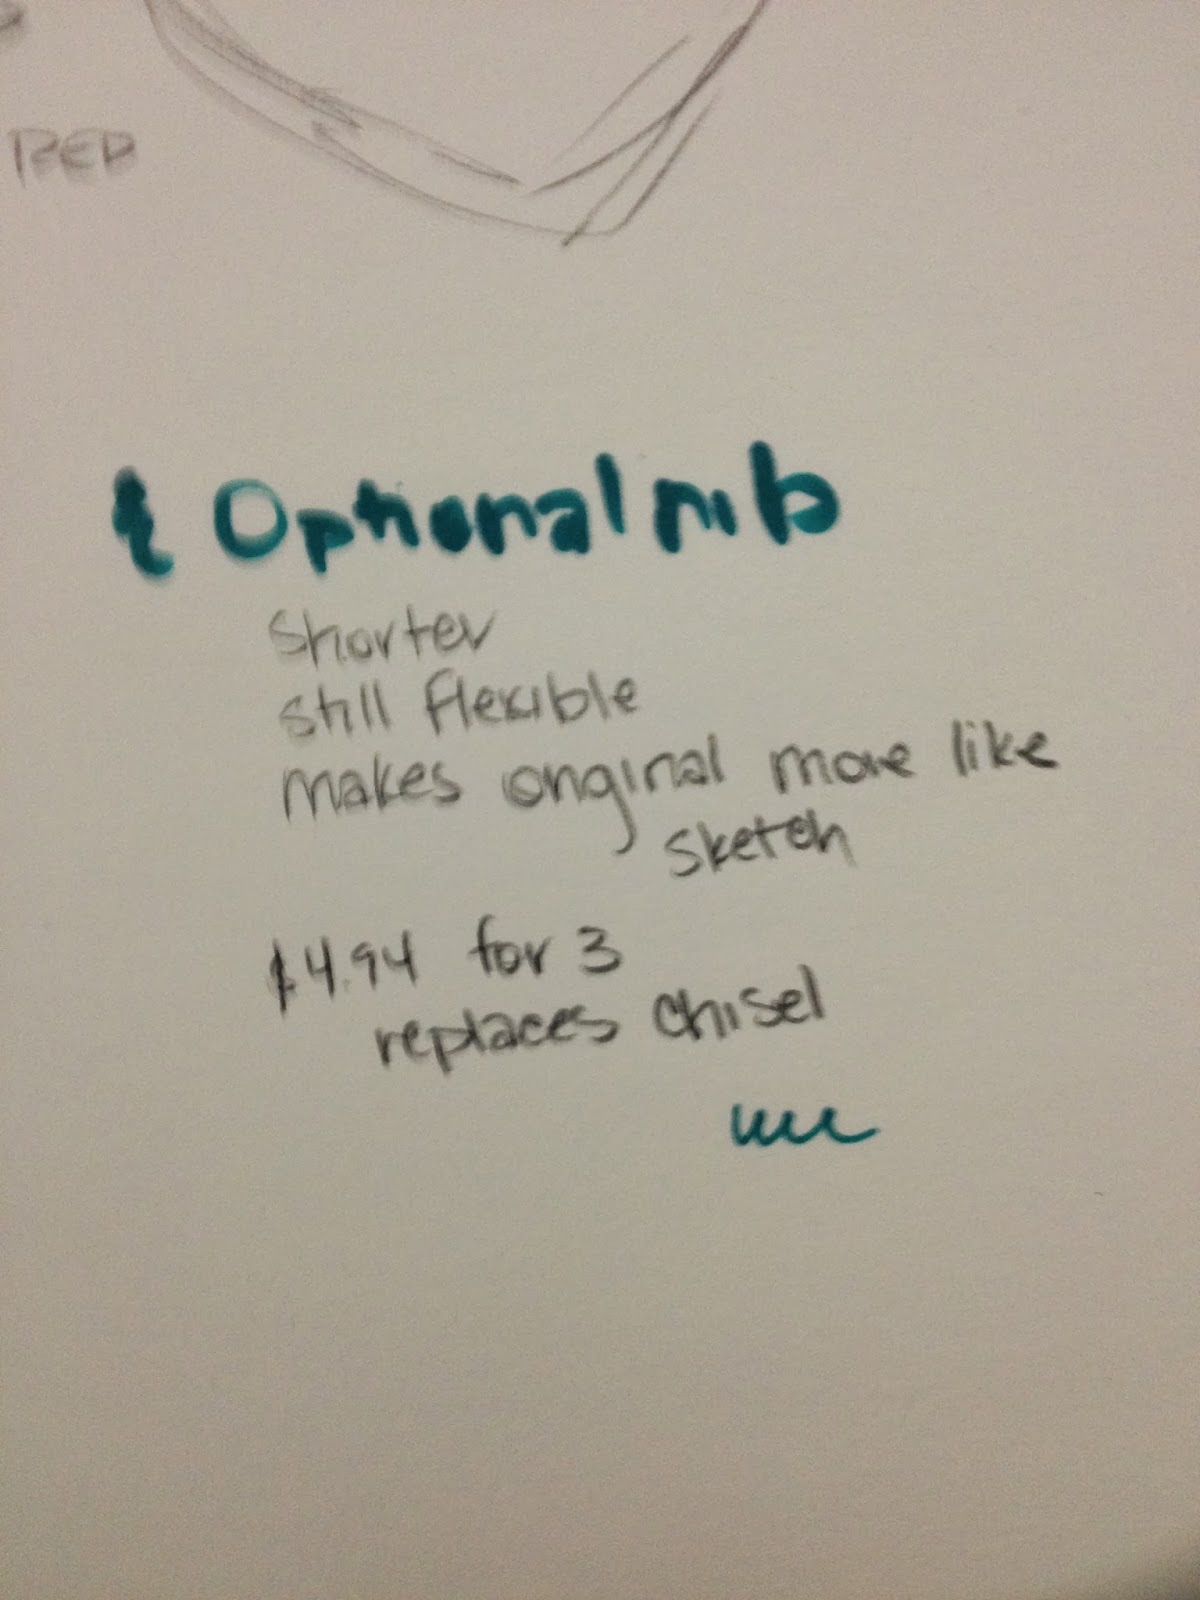 RED
& Optional nib
Shorter
Still flexible
makes original more like
sketch
$4.94 for 3
replaces chisel